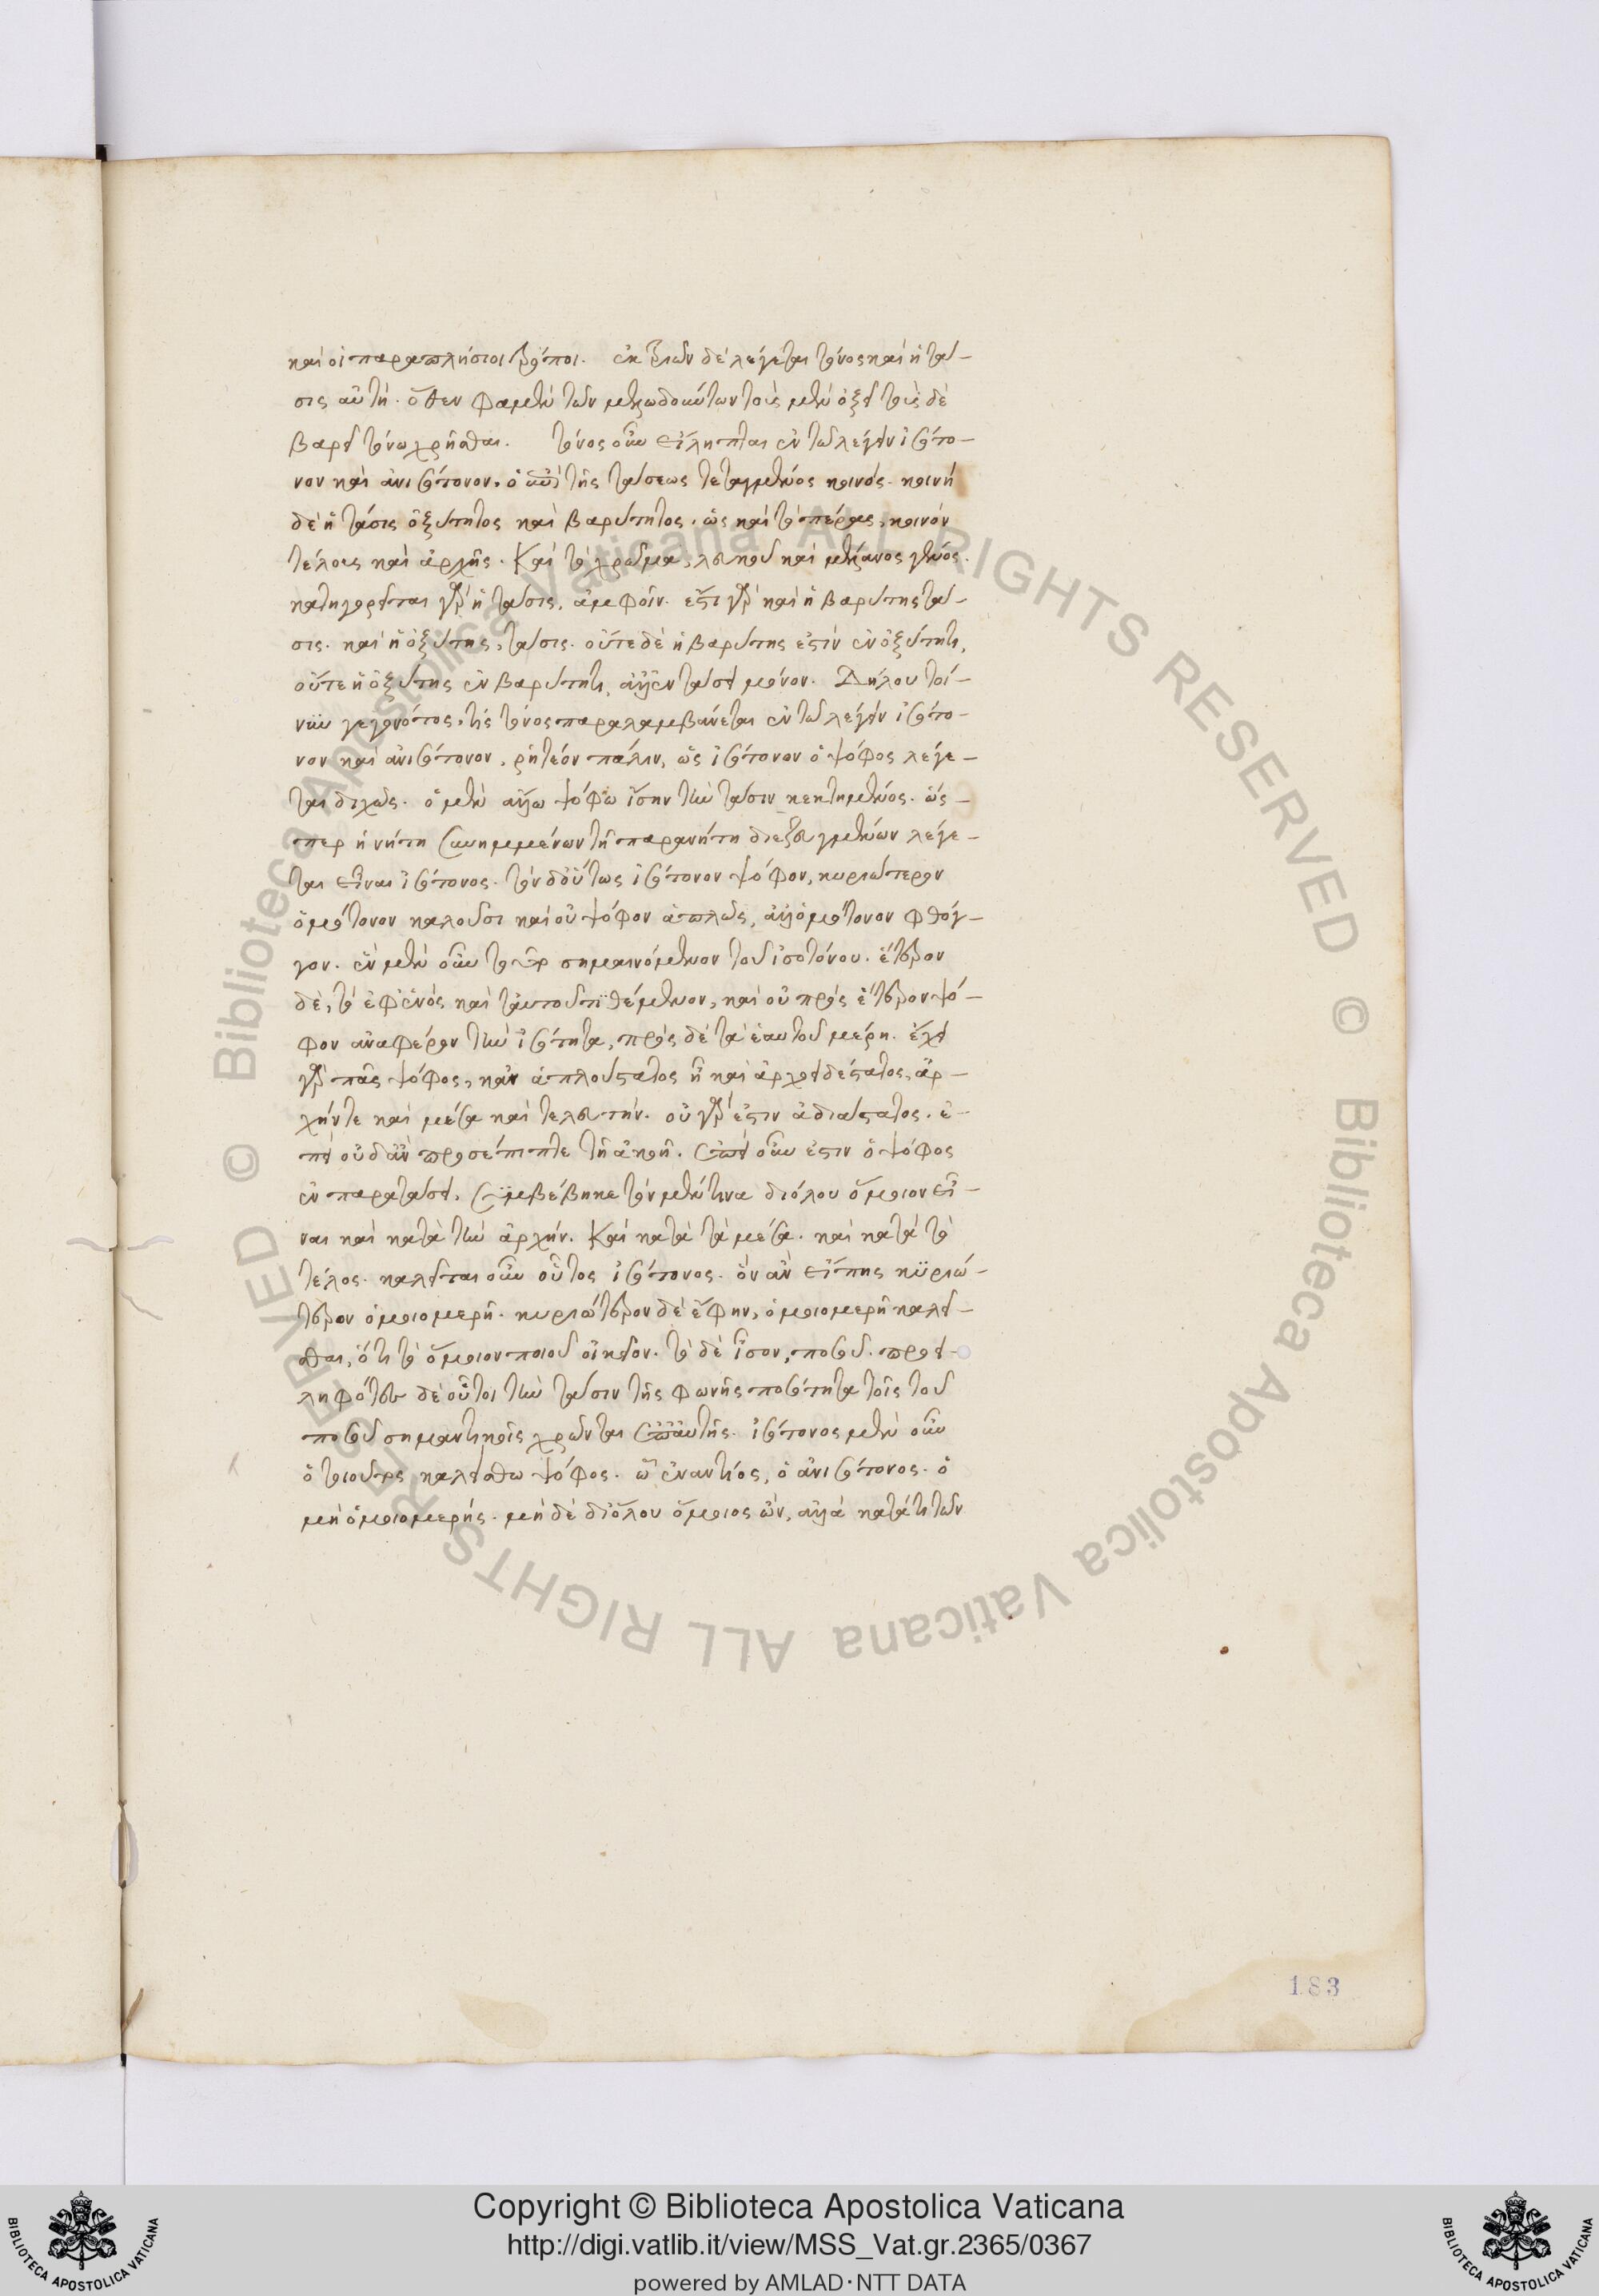 καὶ οἱ παραπλήσιοι τρόποι. ἐκ τρίτων δὲ λέγεται τόνος καὶ ἡ τά-
σις αὐτή. ὅθεν φαμὲν τῶν μελωδούντων τοὺς μὲν ὀξεῖ τοὺς δὲ
βαρεῖ τόνω χρῆσθαι. τόνος οὖν εἴληπται ἐν τῶ λέγειν ἰσότο-
νον καὶ ἀνισότονον, ὁ ἀντὶ τῆς τάσεως τεταγμένος κοινός. κοινὴ
δὲ ἡ τάσις ὀξύτητος καὶ βαρύτητος, ὡς καὶ τὸ πέρας, κοινὸν
τέλους καὶ ἀρχῆς. Καὶ τὸ χρῶμα, λευκοῦ καὶ μέλανος γένος.
κατηγορεῖται γὰρ ἡ τάσις, ἀμφοῖν. ἔστι γὰρ καὶ ἡ βαρύτης τά-
σις. καὶ ἡ ὀξύτης, τάσις. οὔτε δὲ ἡ βαρύτης ἐστὶν ἐν ὀξύτητι,
οὔτε ἡ ὀξύτης ἐν βαρύτητι, ἀλλ' ἐν τάσει μόνον. Δήλου τοί-
νυν γεγονότος, τίς τόνος παραλαμβάνεται ἐν τῶ λέγειν ἰσότο-
νον καὶ ἀνισότονον, ῥητέον πάλιν, ὡς ἰσότονον ὁ ψόφος λέγε-
ται διχῶς. ὁ μὲν ἄλλω ψόφω ἴσην τὴν τάσιν κεκτημένος. ὡς-
περ ἡ νήτη συνημμένων τῆ παρανήτη διεζευγμένων λέγε-
ται εἶναι ἰσότονος. τὸν δ' οὕτως ἰσότονον ψόφον, κυριώτερον
ὁμότονον καλοῦσι καὶ οὐ ψόφον ἁπλῶς, ἀλλ' ὁμότονον φθόγ-
γον. ἓν μὲν οὖν τοῦτο σημαινόμενον τοῦ ἰσοτόνου. ἕτερον
δὲ, τὸ ἐφ' ἑνὸς καὶ ταὐτοῦ τιθέμενον, καὶ οὐ πρὸς ἕτερον ψό-
φον ἀναφέρον τὴν ἰσότητα, πρὸς δὲ τὰ ἑαυτοῦ μέρη. ἔχει
γὰρ πᾶς ψόφος, κἂν ἁπλούστατος ἦ καὶ ἀρχοειδέστατος, ἀρ-
χήν τε καὶ μέσα καὶ τελευτήν. οὐ γάρ ἐστιν ἀδιάστατος. ἐ-
πεὶ οὐδ' ἂν προσέπιπτε τῆ ἀκοῆ. ἐπεὶ οὖν ἐστιν ὁ ψόφος
ἐν παρατάσει, συμβέβηκε τὸν μέν τινα διόλου ὅμοιον εἶ-
ναι καὶ κατὰ τὴν ἀρχήν. Καὶ κατὰ τὰ μέσα. καὶ κατὰ τὸ
τέλος. καλεῖται οὖν οὗτος ἰσότονος. ὃν ἂν εἴπης κυριώ-
τερον ὁμοιομερῆ. κυριώτερον δὲ ἔφην, ὁμοιομερῆ καλεῖ-
σθαι, ὅτι τὸ ὅμοιον ποιοῦ οἰκεῖον. τὸ δὲ ἴσον, ποσοῦ. προει-
ληφότες δὲ οὗτοι τὴν τάσιν τῆς φωνῆς ποσότητα τοῖς τοῦ
ποσοῦ σημαντικοῖς χρῶνται ἐπ' αὐτῆς. ἰσότονος μὲν οὖν
ὁ τοιοῦτος καλείσθω ψόφος. ὧ ἐναντίος, ὁ ἀνισότονος. ὁ
μὴ ὁμοιομερής. μὴ δὲ διόλου ὅμοιος ὤν, ἀλλὰ κατά τι τῶν
183
Copyright © Biblioteca Apostolica Vaticana
http://digi.vatlib.it/view/MSS_Vat.gr.2365/0367
powered by AMLAD·NTT DATA
BIBLIOTECA APOSTOLICA VATICANA
BIBLIOTECA APOSTOLICA VATICANA
© Biblioteca Apostolica Vaticana ALL RIGHTS RESERVED
© Biblioteca Apostolica Vaticana ALL RIGHTS RESERVED